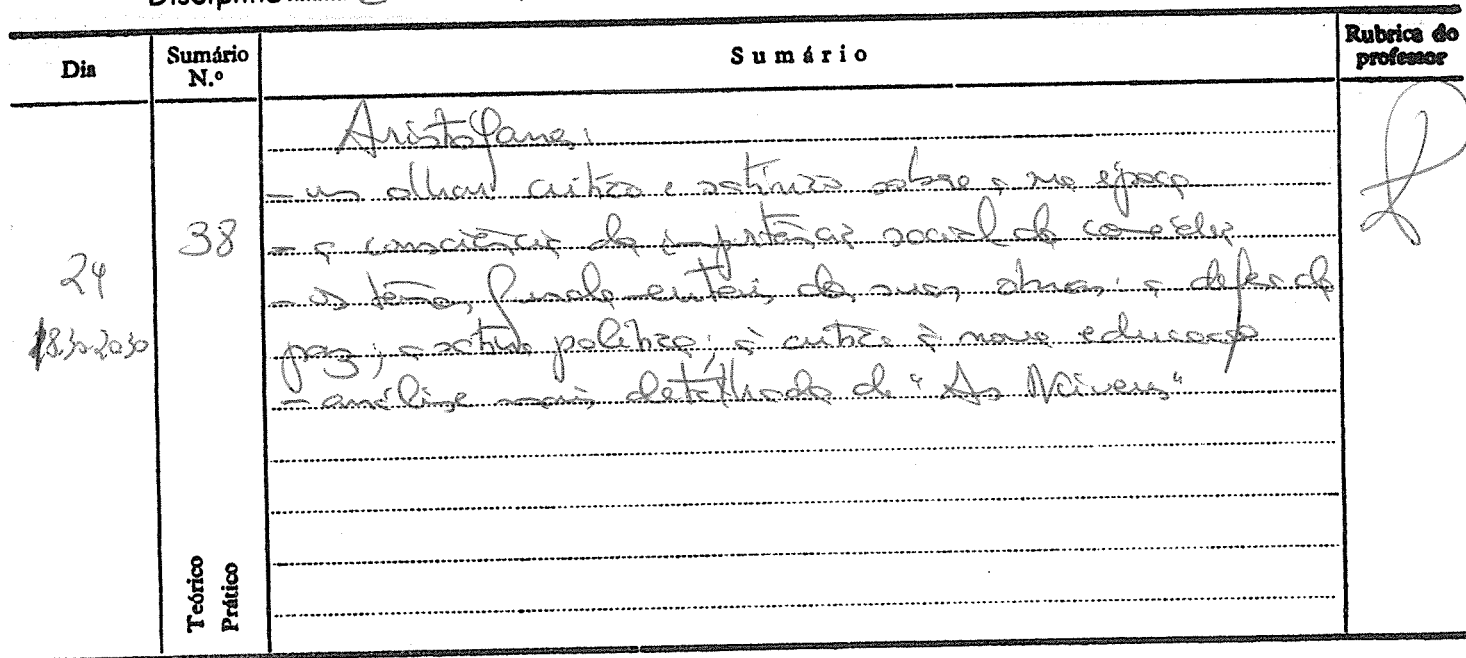 Dia
Sumário N.º
Sumário
Rubrica do professor
24
18.30-20.30
38
Aristófanes:
- um olhar crítico e satírico sobre a sua época
- a consciência da importância social da comédia
- os temas fundamentais das suas obras: a defesa da
paz; a sátira política; a crítica à nova educação
- análise mais detalhada de "As Nuvens"
Teórico
Prático